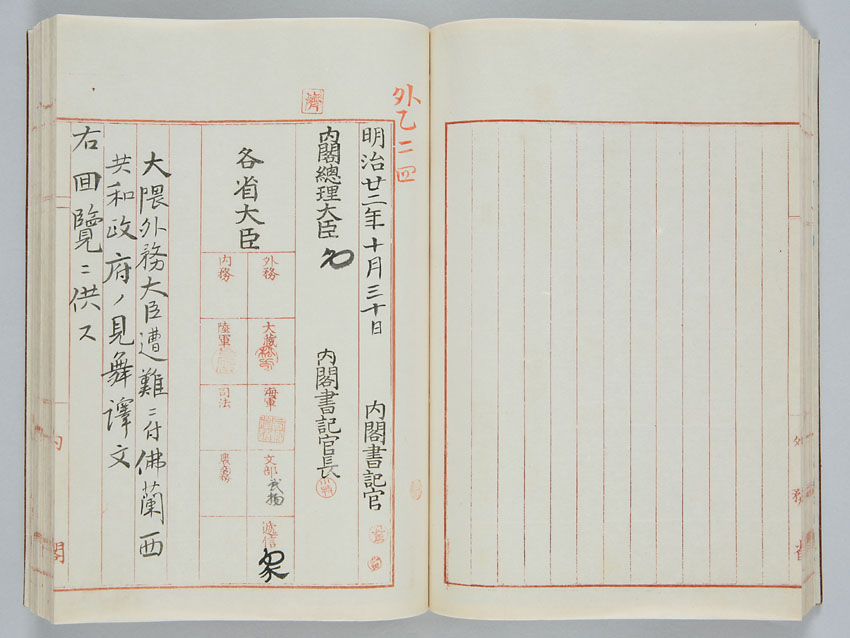 濟
外乙二四
明治廿二年十月三十日
内閣書記官
内閣總理大臣
内閣書記官長
各省大臣
外務
大蔵
海軍
文部
遞信
内務
陸軍
司法
大隈外務大臣遭難ニ付佛蘭西
共和政府ノ見舞譯文
右回覽ニ供ス
外務省
内閣